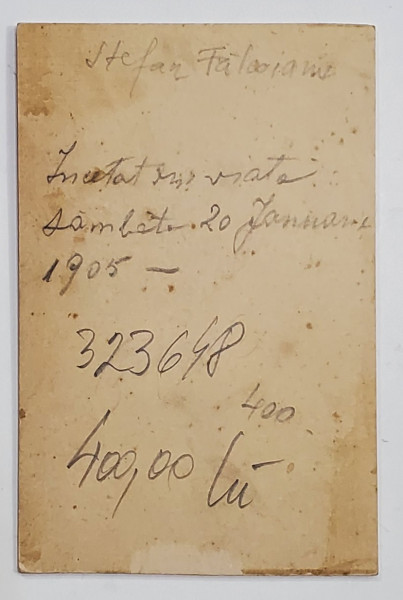 Stefan Fălcoianu
Incetat din viata
sâmbăta 20 Januarie
1905 —
323648
400
400,00 lei